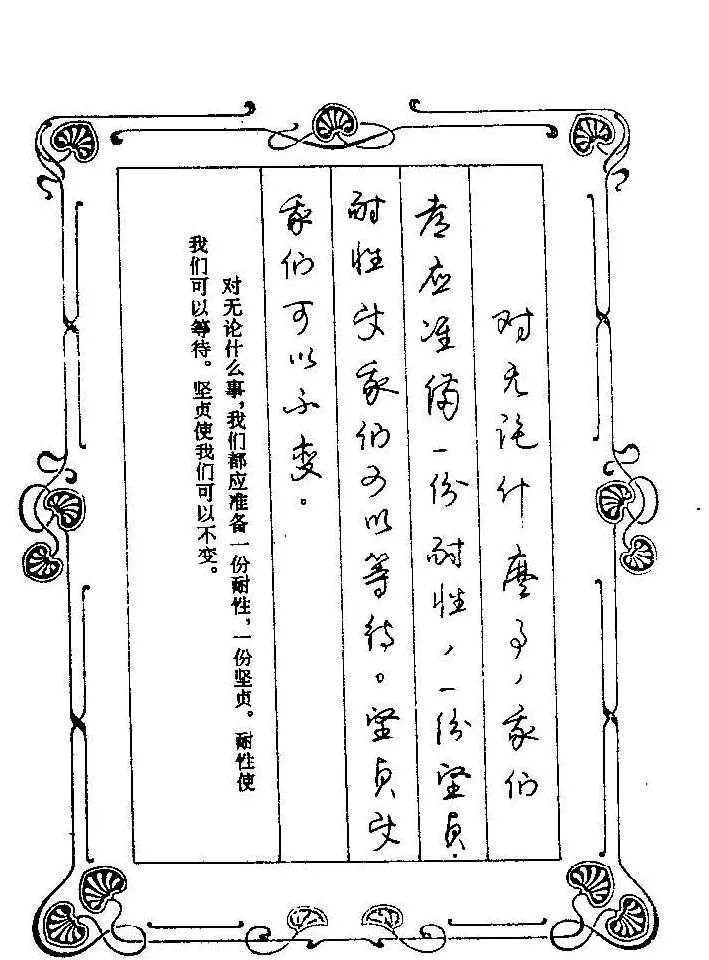 对无论什麼事，我们
都应准备一份耐性，一份坚贞．
耐性使我们可以等待。坚贞使
我们可以不变。
对无论什么事，我们都应准备一份耐性，一份坚贞。耐性使
我们可以等待。坚贞使我们可以不变。